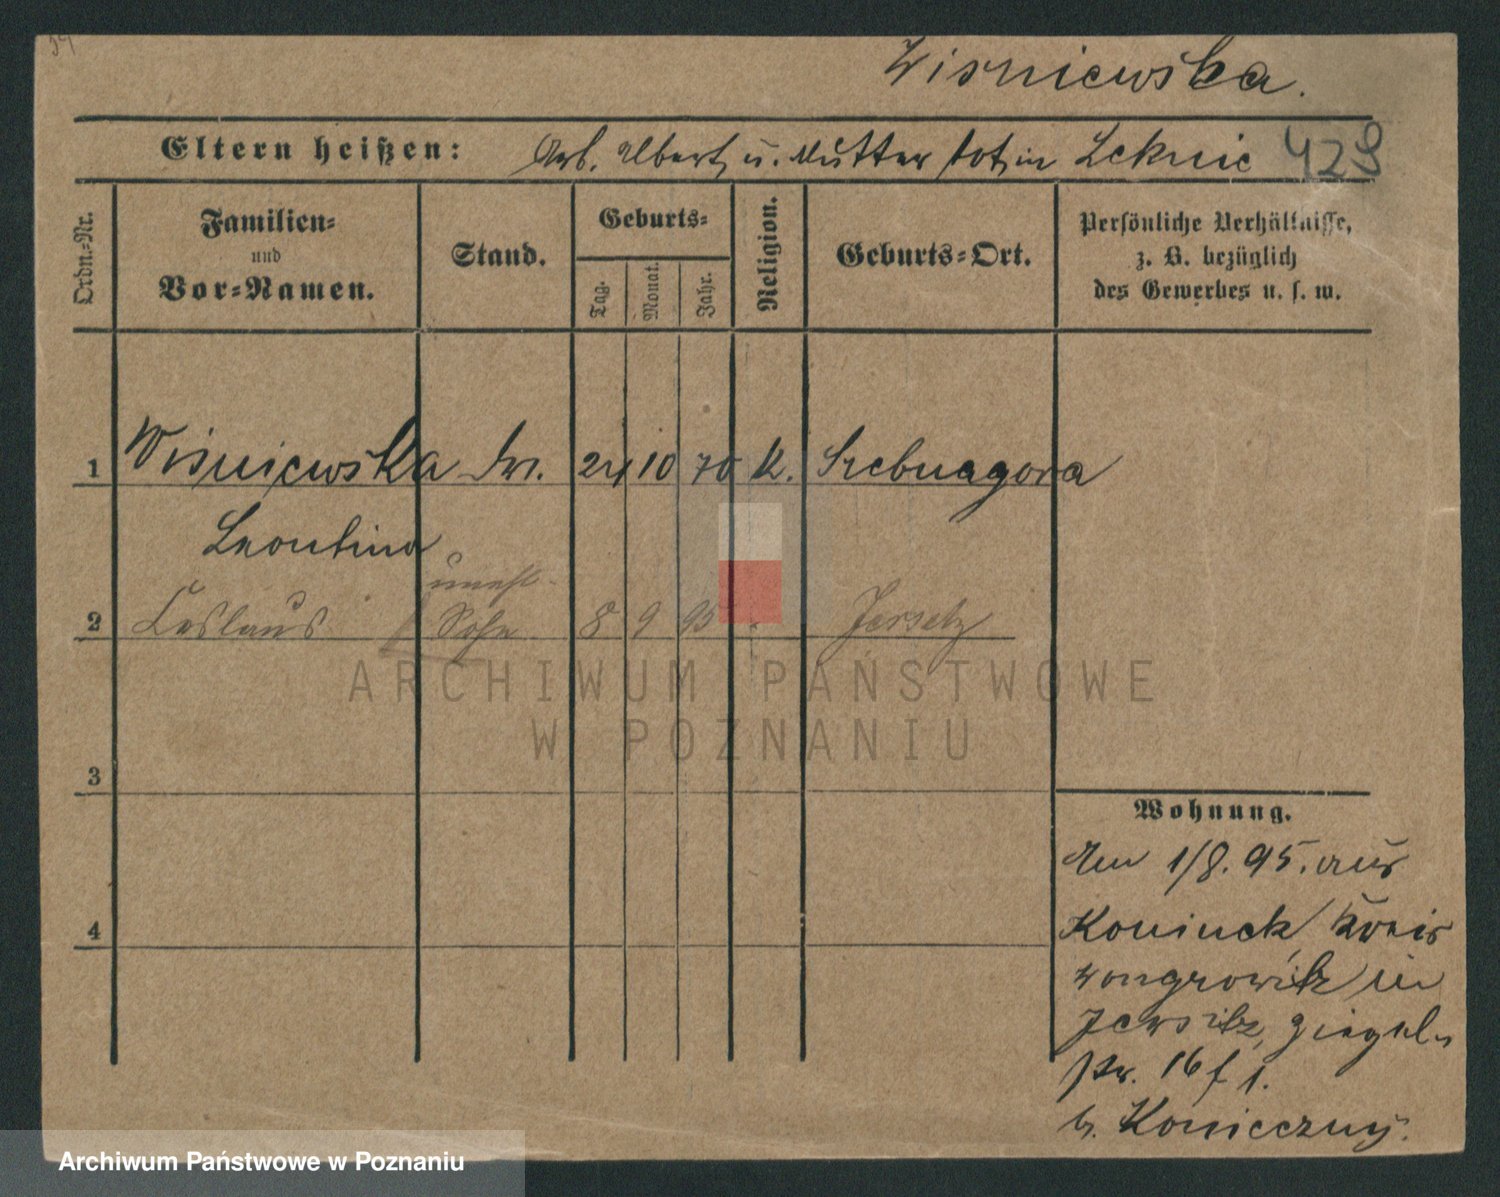 Wisniewska.
Eltern heißen: Arb. Albert u. Mutter tot, in Leknic 429
Ordn.=Nr.
Familien=
und
Vor=Namen.
Stand.
Geburts=
Tag.
Monat.
Jahr.
Religion.
Geburts=Ort.
Persönliche Verhältnisse,
z. B. bezüglich
des Gewerbes u. s. w.
1 Wisniewska 24 10 70 K. Srebnagora
Leontina
unehl.
2 Ceslaus Sohn 8 9 95 Jersetz
3
4
Wohnung.
Am 1/8. 95. aus
Koninck, Kreis
Wongrowitz in
Jersitz, Ziegel-
str. 16 f 1.
b. Konieczny.
ARCHIWUM PAŃSTWOWE
W POZNANIU
Archiwum Państwowe w Poznaniu